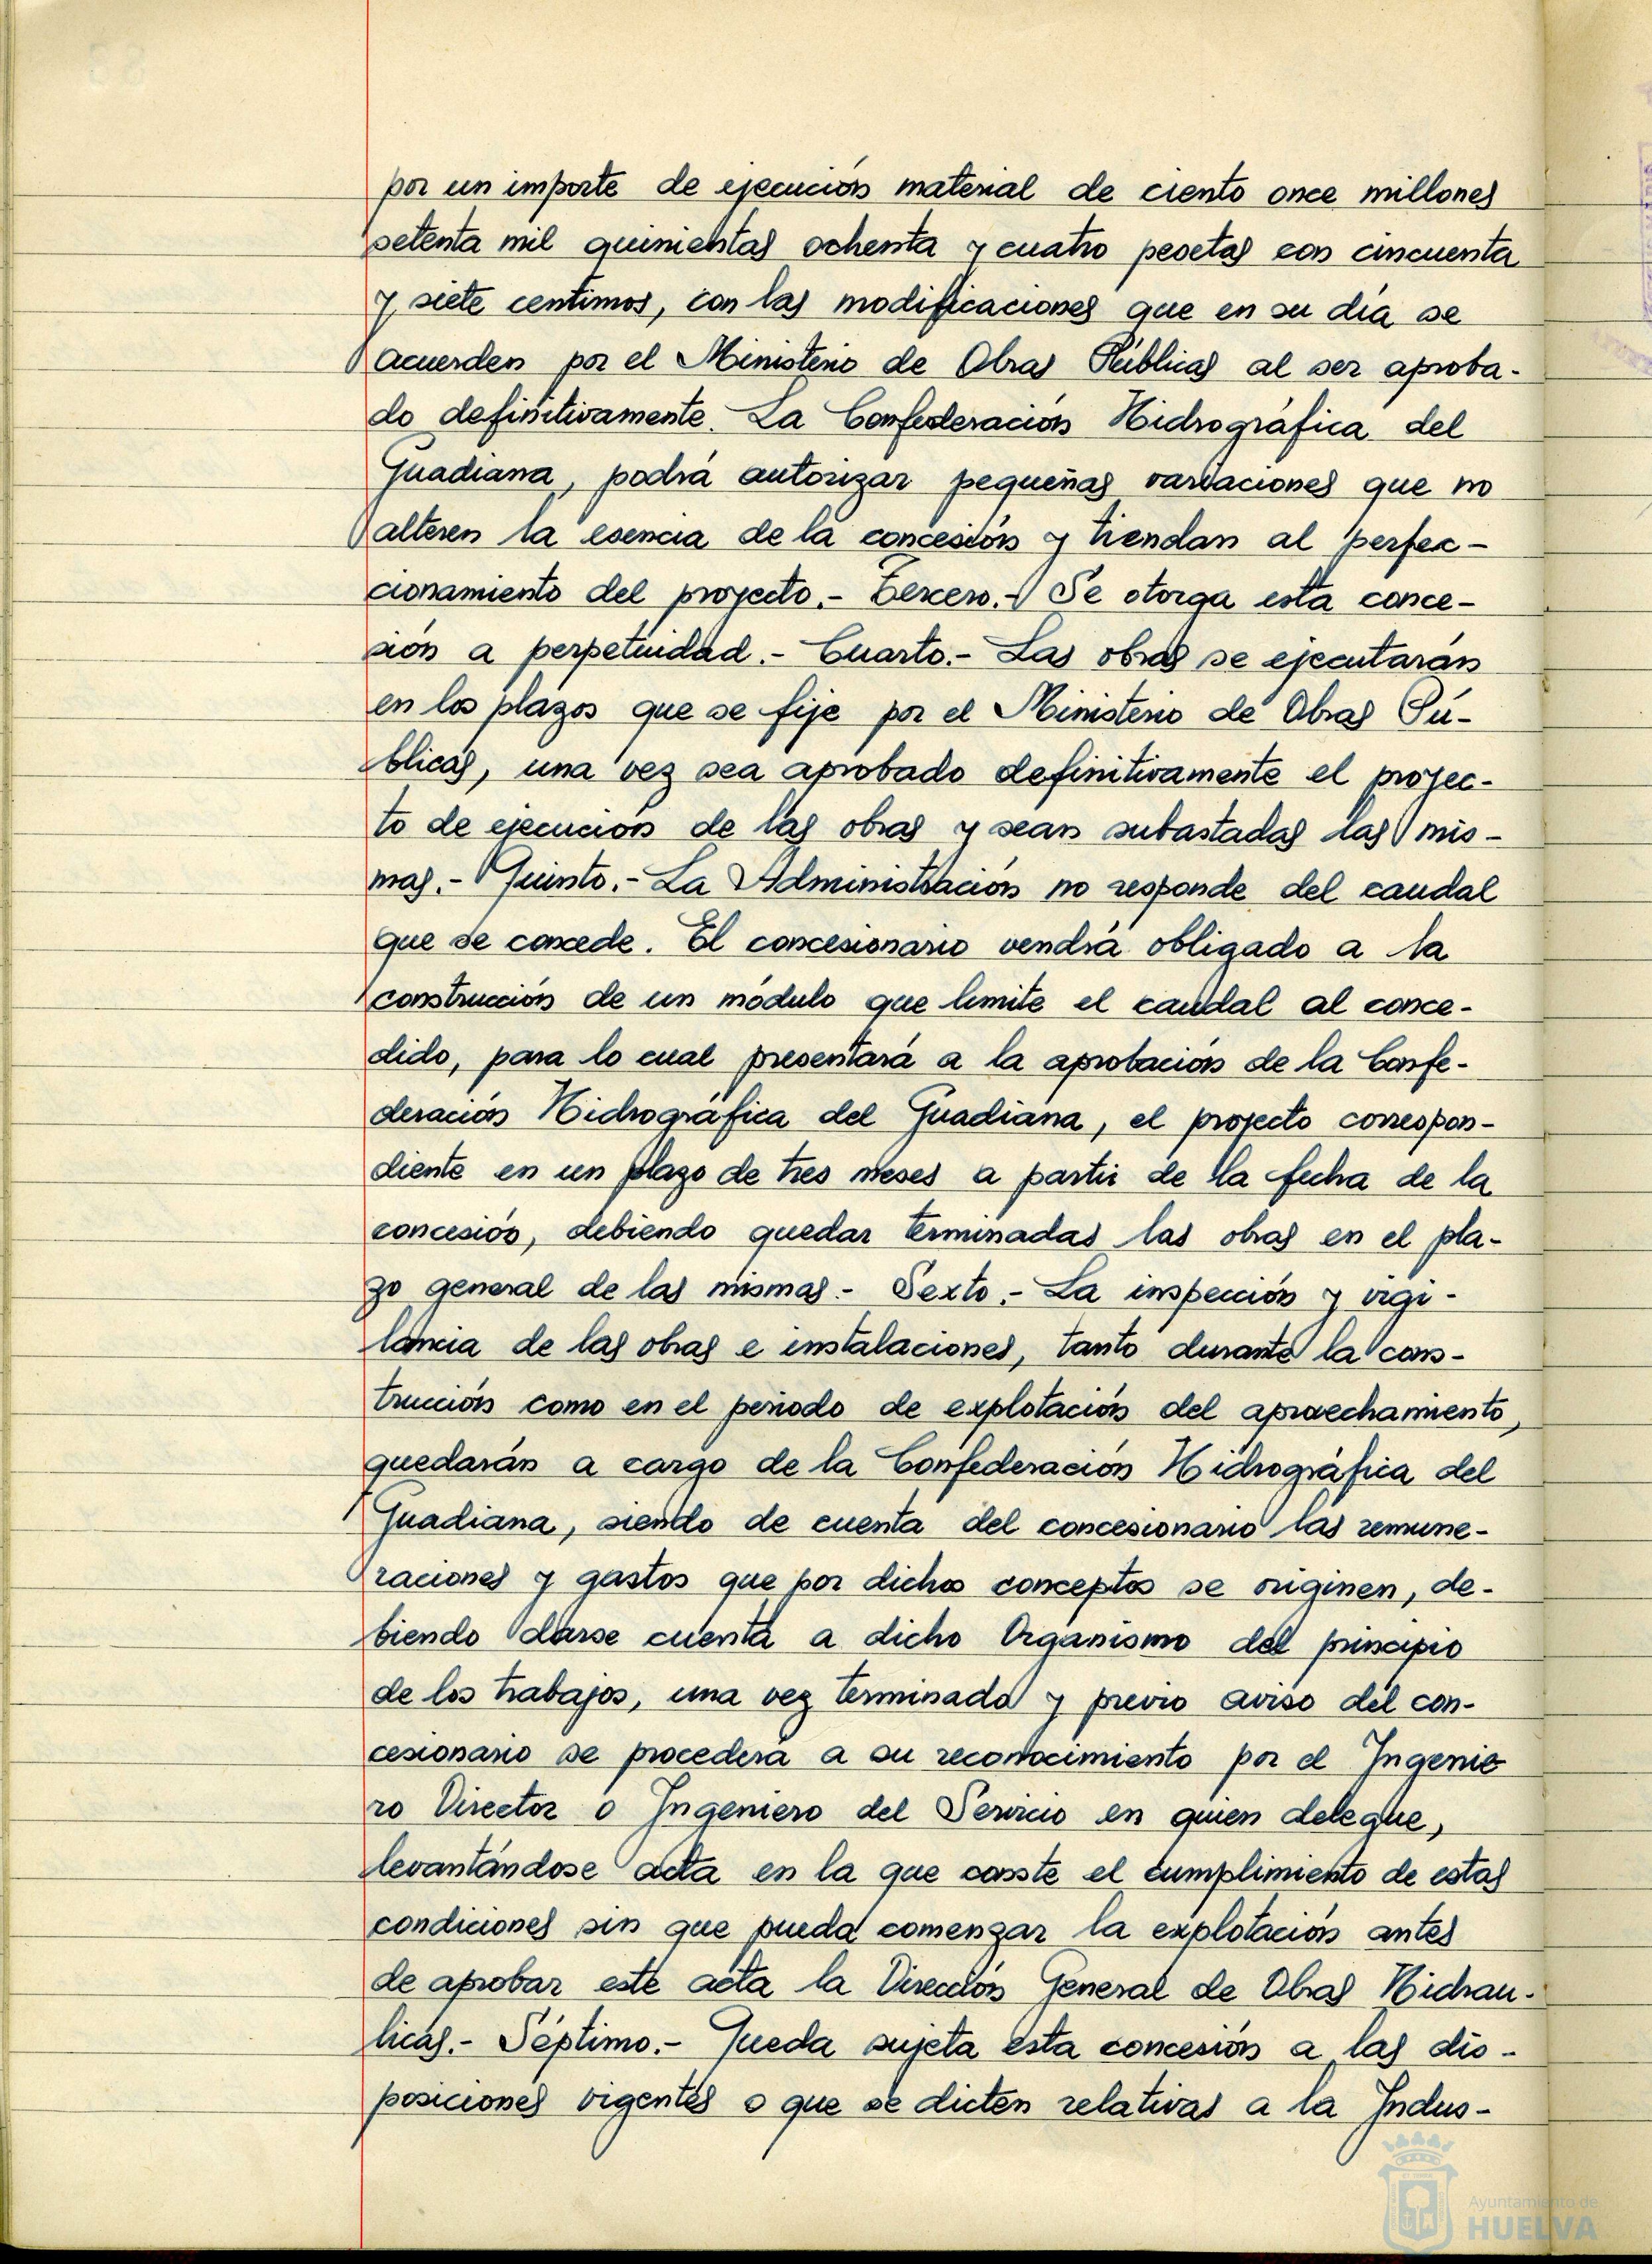 por un importe de ejecución material de ciento once millones
setenta mil quinientas ochenta y cuatro pesetas con cincuenta
y siete centimos, con las modificaciones que en su día se
acuerden por el Ministerio de Obras Públicas al ser aproba-
do definitivamente. La Confederación Hidrográfica del
Guadiana, podrá autorizar pequeñas variaciones que no
alteren la esencia de la concesión y tiendan al perfec-
cionamiento del proyecto.- Tercero.- Se otorga esta conce-
sión a perpetuidad.- Cuarto.- Las obras se ejecutarán
en los plazos que se fije por el Ministerio de Obras Pú-
blicas, una vez sea aprobado definitivamente el proyec-
to de ejecución de las obras y sean subastadas las mis-
mas.- Quinto.- La Administración no responde del caudal
que se concede. El concesionario vendrá obligado a la
construcción de un módulo que limite el caudal al conce-
dido, para lo cual presentará a la aprobación de la Confe-
deración Hidrográfica del Guadiana, el proyecto correspon-
diente en un plazo de tres meses a partir de la fecha de la
concesión, debiendo quedar terminadas las obras en el pla-
zo general de las mismas.- Sexto.- La inspección y vigi-
lancia de las obras e instalaciones, tanto durante la cons-
trucción como en el periodo de explotación del aprovechamiento,
quedarán a cargo de la Confederación Hidrográfica del
Guadiana, siendo de cuenta del concesionario las remune-
raciones y gastos que por dichos conceptos se originen, de-
biendo darse cuenta a dicho Organismo del principio
de los trabajos, una vez terminado y previo aviso del con-
cesionario se procederá a su reconocimiento por el Ingenie
ro Director o Ingeniero del Servicio en quien delegue,
levantándose acta en la que conste el cumplimiento de estas
condiciones sin que pueda comenzar la explotación antes
de aprobar este acta la Dirección General de Obras Hidrau-
licas.- Séptimo.- Queda sujeta esta concesión a las dis-
posiciones vigentes o que se dicten relativas a la Indus-
Ayuntamiento de
HUELVA